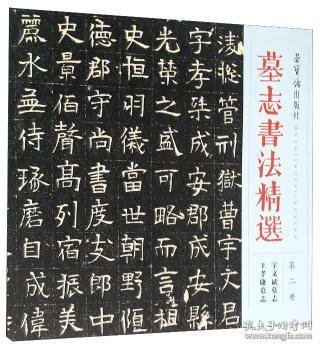 榮寶齋出版社
墓志書法精選
第二册
宇文斌墓志
王孝康墓志
管刑獄曹宇文君
字孝 成安郡
光榮之盛可略而言祖
史恒羽儀當世朝野
德郡守尚書度支郎中
史景伯聲高列宿振美
麗水無待琢磨自成偉
孔夫子旧书网